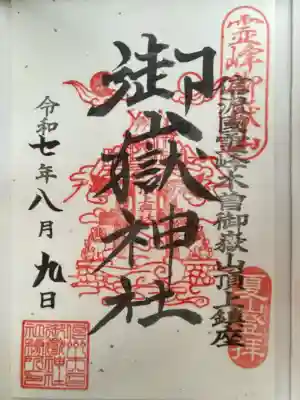 霊峰御嶽山
信濃國霊峰木曽御嶽山頂上鎮座
夏山登拝
御嶽神社
令和七年八月九日